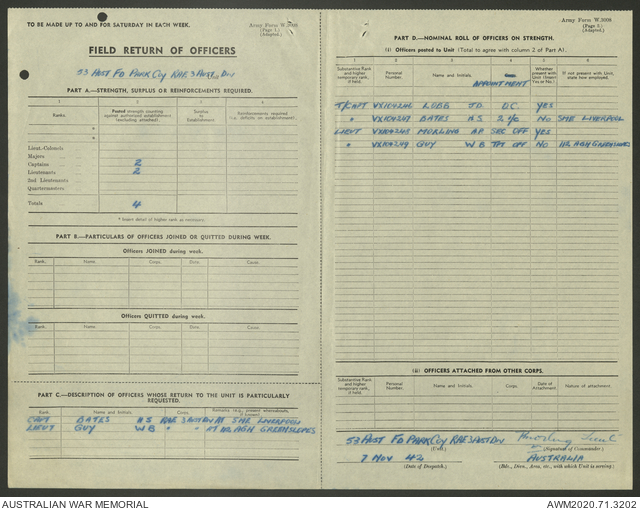 TO BE MADE UP TO AND FOR SATURDAY IN EACH WEEK.
Army Form W.3008
(Page 1.)
(Adapted.)
FIELD RETURN OF OFFICERS
53 AUST FD PARK COY RAE 3 AUST DIV
PART A.—STRENGTH, SURPLUS OR REINFORCEMENTS REQUIRED.
1 2 3 4
Ranks Posted strength counting against authorised establishment (excluding attached). Surplus to Establishment Reinforcements required (i.e. deficits on establishment)
*
*
Lieut.-Colonels
Majors
Captains 2
Lieutenants 2
2nd Lieutenants
Quartermasters
Totals 4
* Insert detail of higher rank as necessary.
PART B.—PARTICULARS OF OFFICERS JOINED OR QUITTED DURING WEEK.
Officers JOINED during week.
Rank. Name. Corps. Date. Cause.
Officers QUITTED during week.
Rank. Name. Corps. Date. Cause.
PART C.—DESCRIPTION OF OFFICERS WHOSE RETURN TO THE UNIT IS PARTICULARLY REQUESTED.
Rank. Name and Initials. Corps. Remarks (e.g., present whereabouts, if known).
CAPT BATES H S RAE 3 AUST DIV AT SME LIVERPOOL
LIEUT GUY W B " " AT 112 AGH GREENSLOPES
Army Form W.3008
(Page 2.)
(Adapted.)
PART D.—NOMINAL ROLL OF OFFICERS ON STRENGTH.
(i) Officers posted to Unit (Total to agree with column 2 of Part A).
1 2 3 4 5 6
Substantive Rank and higher temporary rank, if held. Personal Number. Name and Initials. APPOINTMENT Whether present with Unit (insert Yes or No). If not present with Unit, state how employed.
T/CAPT VX104246 LOBB J D. O.C. YES
" VX104247 BATES H S. 2 i/c NO SME LIVERPOOL
LIEUT VX104248 MORLING A P SEC OFF YES
" VX104249 GUY W B TPT OFF NO 112 AGH GREENSLOPES
(ii) OFFICERS ATTACHED FROM OTHER CORPS.
Substantive Rank and higher temporary rank, if held. Personal Number. Name and Initials. Corps. Date of Attachment Nature of attachment.
53 AUST FD PARK COY RAE 3 AUST DIV
(Unit.) (Signature of Commander.)
7 NOV 42 AUSTRALIA
(Date of Despatch.) (Bde., Divn., Area, etc., with which Unit is serving.)
AUSTRALIAN WAR MEMORIAL
AWM2020.71.3202